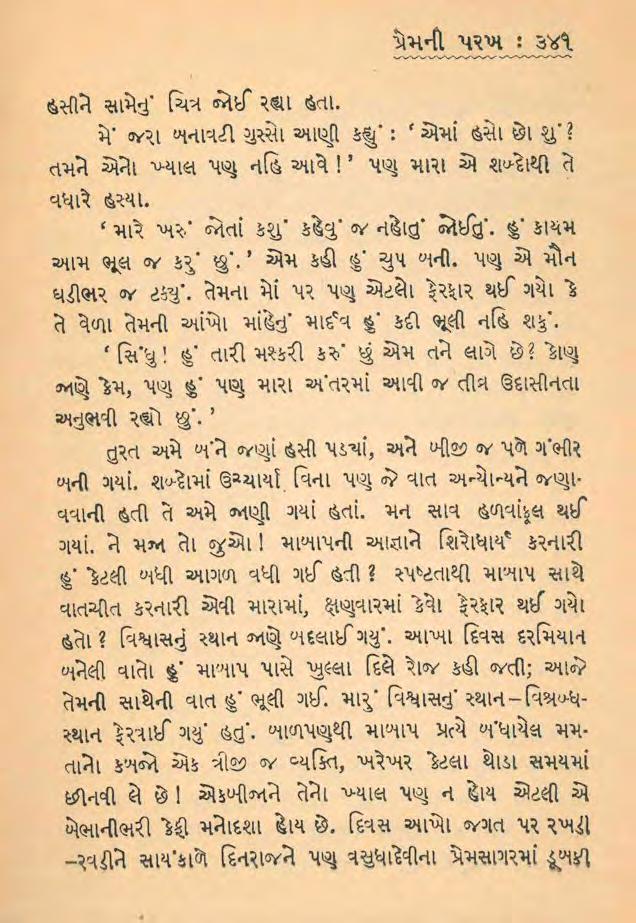 પ્રેમની પરખ : ૩૪૧
હસીને સામેનું ચિત્ર જોઈ રહ્યા હતા.
મેં જરા બનાવટી ગુસ્સો આણી કહ્યું : ‘ એમાં હસો છો શું ?
તમને એનો ખ્યાલ પણ નહિ આવે ! ’ પણ મારા એ શબ્દોથી તે
વધારે હસ્યા.
‘ મારે ખરું જોતાં કશું કહેવું જ નહોતું જોઈતું. હું કાયમ
આમ ભૂલ જ કરું છું. ’ એમ કહી હું ચુપ બની. પણ એ મૌન
ઘડીભર જ ટક્યું. તેમના મોં પર પણ એટલો ફેરફાર થઈ ગયો કે
તે વેળા તેમની આંખો માંહેનું માર્દવ હું કદી ભૂલી નહિ શકું.
‘ સિંધુ ! હું તારી મશ્કરી કરું છું એમ તને લાગે છે ? કોણ
જાણે કેમ, પણ હું પણ મારા અંતરમાં આવી જ તીવ્ર ઉદાસીનતા
અનુભવી રહ્યો છું. ’
તુરત અમે બંને જણાં હસી પડ્યાં, અને બીજી જ પળે ગંભીર
બની ગયાં. શબ્દોમાં ઉચ્ચાર્યા વિના પણ જે વાત અન્યોન્યને જણા-
વવાની હતી તે અમે જાણી ગયાં હતાં. મન સાવ હળવાંફૂલ થઈ
ગયાં. ને મજા તો જુઓ ! માબાપની આજ્ઞાને શિરોધાર્ય કરનારી
હું કેટલી બધી આગળ વધી ગઈ હતી ? સ્પષ્ટતાથી માબાપ સાથે
વાતચીત કરનારી એવી મારામાં, ક્ષણવારમાં કેવો ફેરફાર થઈ ગયો
હતો ? વિશ્વાસનું સ્થાન જાણે બદલાઈ ગયું. આખા દિવસ દરમિયાન
બનેલી વાતો હું માબાપ પાસે ખુલ્લા દિલે રોજ કહી જતી; આજે
તેમની સાથેની વાત હું ભૂલી ગઈ. મારું વિશ્વાસનું સ્થાન – વિશ્રબ્ધ-
સ્થાન ફેરવાઈ ગયું હતું. બાળપણથી માબાપ પ્રત્યે બંધાયેલ મમ-
તાનો કબજો એક ત્રીજી જ વ્યક્તિ, ખરેખર કેટલા થોડા સમયમાં
છીનવી લે છે ! એકબીજાને તેનો ખ્યાલ પણ ન હોય એટલી એ
બેભાનીભરી કેફી મનોદશા હોય છે. દિવસ આખો જગત પર રખડી
–રવડીને સાયંકાળે દિનરાજને પણ વસુધાદેવીના પ્રેમસાગરમાં ડૂબકી